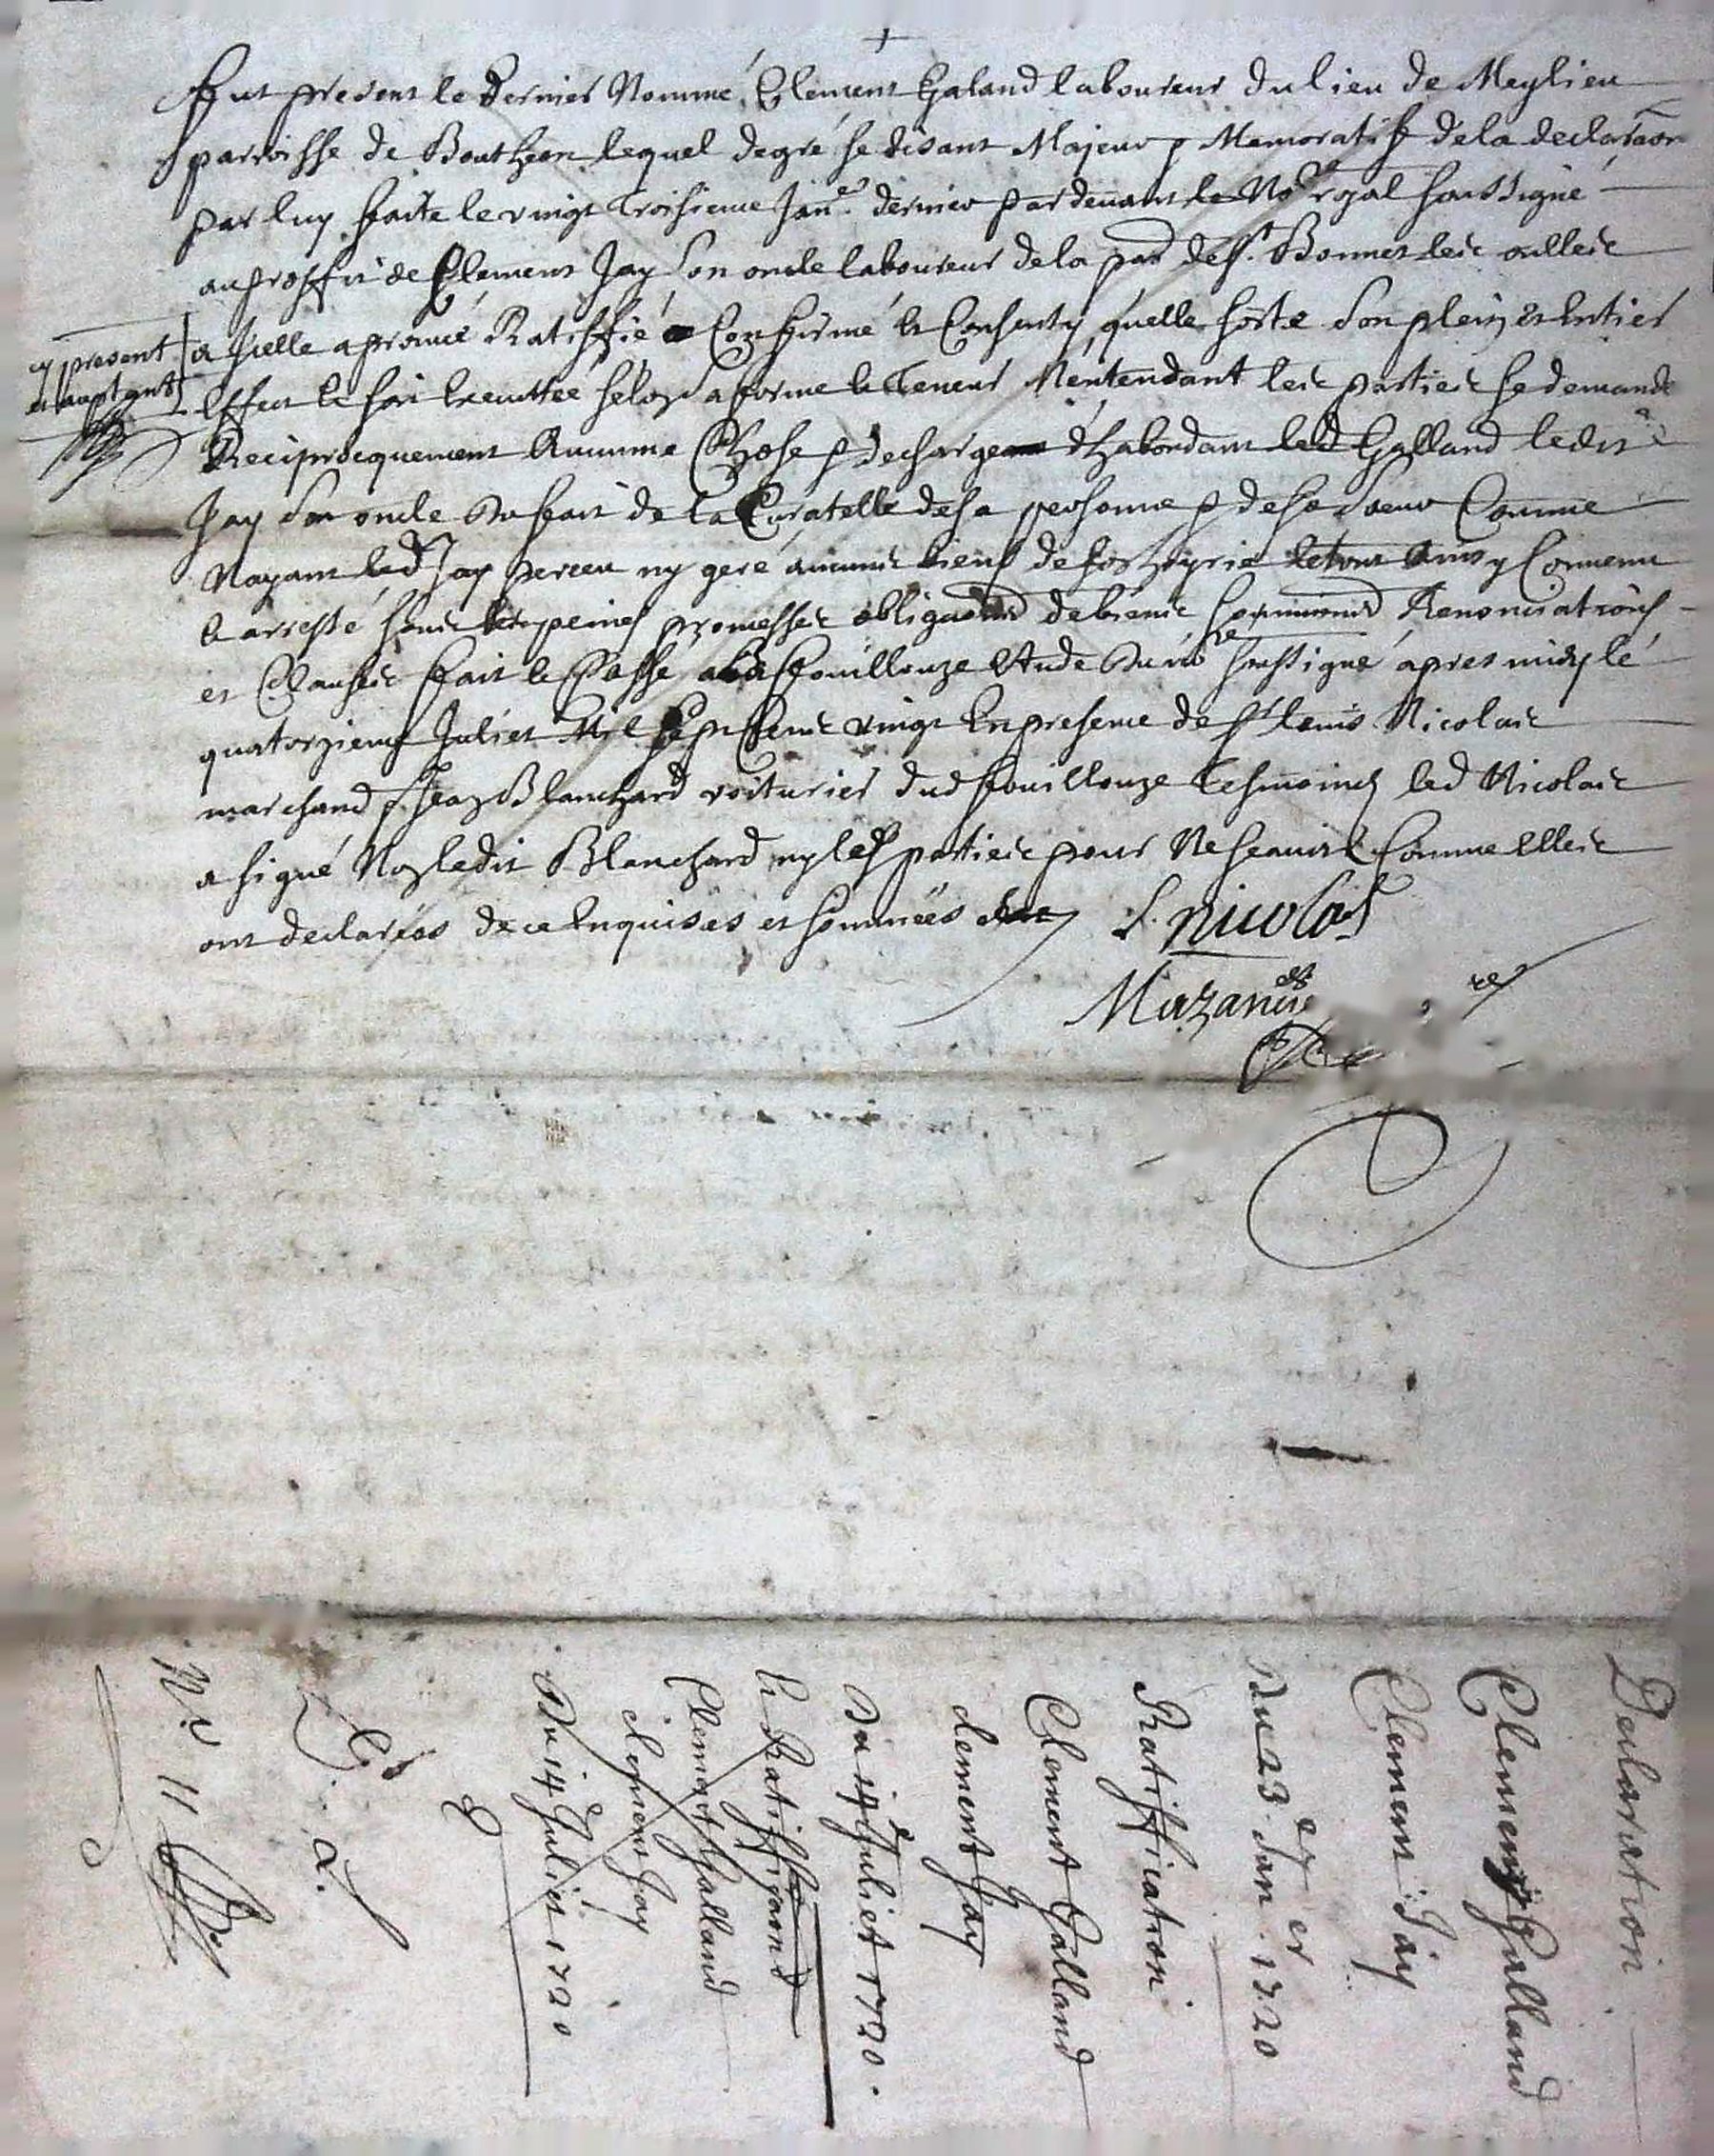 Fut present le dernier Nommé Clement Galand laboureur du lieu de Meylieu
parroisse de Boutheon lequel de gré se disant Majeur & Memoratif de la declaraon
par luy faite le vingt Troisieme Janer dernier pardevant le Nore royal soussigné
au proffit de Clement Jay son oncle laboureur de la par de St. Bonnet les oulles
cy present
et acceptant
a Icelle aprouvé Ratiffié Confirmé et Consenty quelle sorte son plein et Entier
Effect et soit Executtée selon sa forme et Teneur N'entendant les parties se demander
Reciproquement Aucune Chose & decharge d'habondant led Galland ledit
Jay son oncle du fait de la Curatelle de sa personne & de sa soeur Comme
Nayant led Jay perceu ny geré aucuns biens de le tout Ainsy Convenu
et arresté sous les peines promesses obligaons de biens soumissions Renonciations
et Clauses fait et Passé a la fouillouze Etude du nore soussigné apres midy le
quatorzieme Juliet Mil sept Cents vingt En presence de Sr louis Nicolas
marchand & Jean Blanchard voiturier dud fouillouze Tesmoins led Nicolas
a signé Non ledit Blanchard ny les parties pour Ne scavoir Comme Elles
ont declarées de ce Enquises et sommées
L. nicolas
Declaration
Clement Galland
Clement Jay
Du 23 Janer 1720
Ratiffication
Clement Galland
clement Jay
Du 14e Juliet 1720.
Et Ratiffi
Clement Galland
clement Jay
Du 14e Juliet 1720
No 11